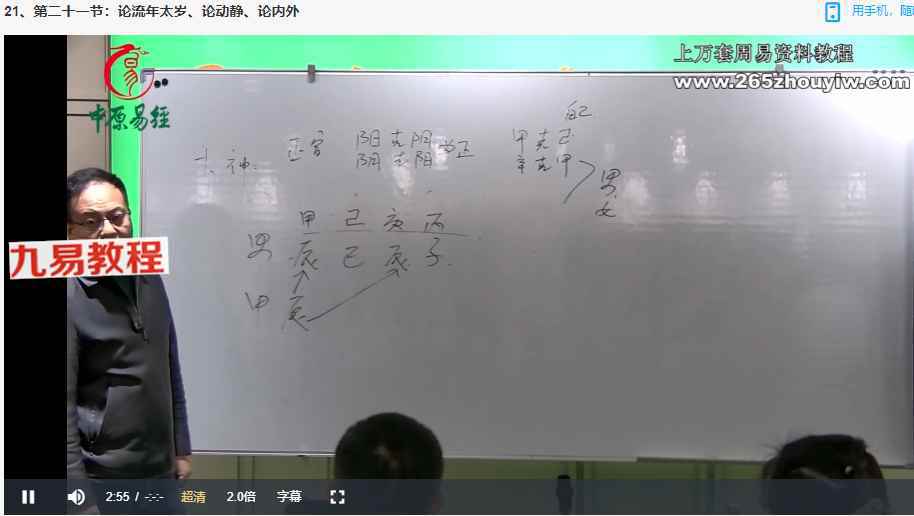 21、第二十一节：论流年太岁、论动静、论内外
用手机，随
上万套周易资料教程
www.265zhouyiw.com
易
中原易經
九易教程
自己
十神：
正官
阴克阳
阳克阴
为正
甲克己
辛克甲
男
女
甲 己 庚 丙
男 辰 巳 辰 子
甲 辰
2:55 / -:-:-
超清
2.0倍
字幕